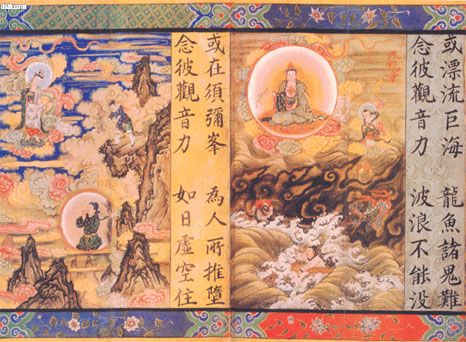 或漂流巨海　龍魚諸鬼難
念彼觀音力　波浪不能没
或在須彌峯　為人所推墮
念彼觀音力　如日虛空住